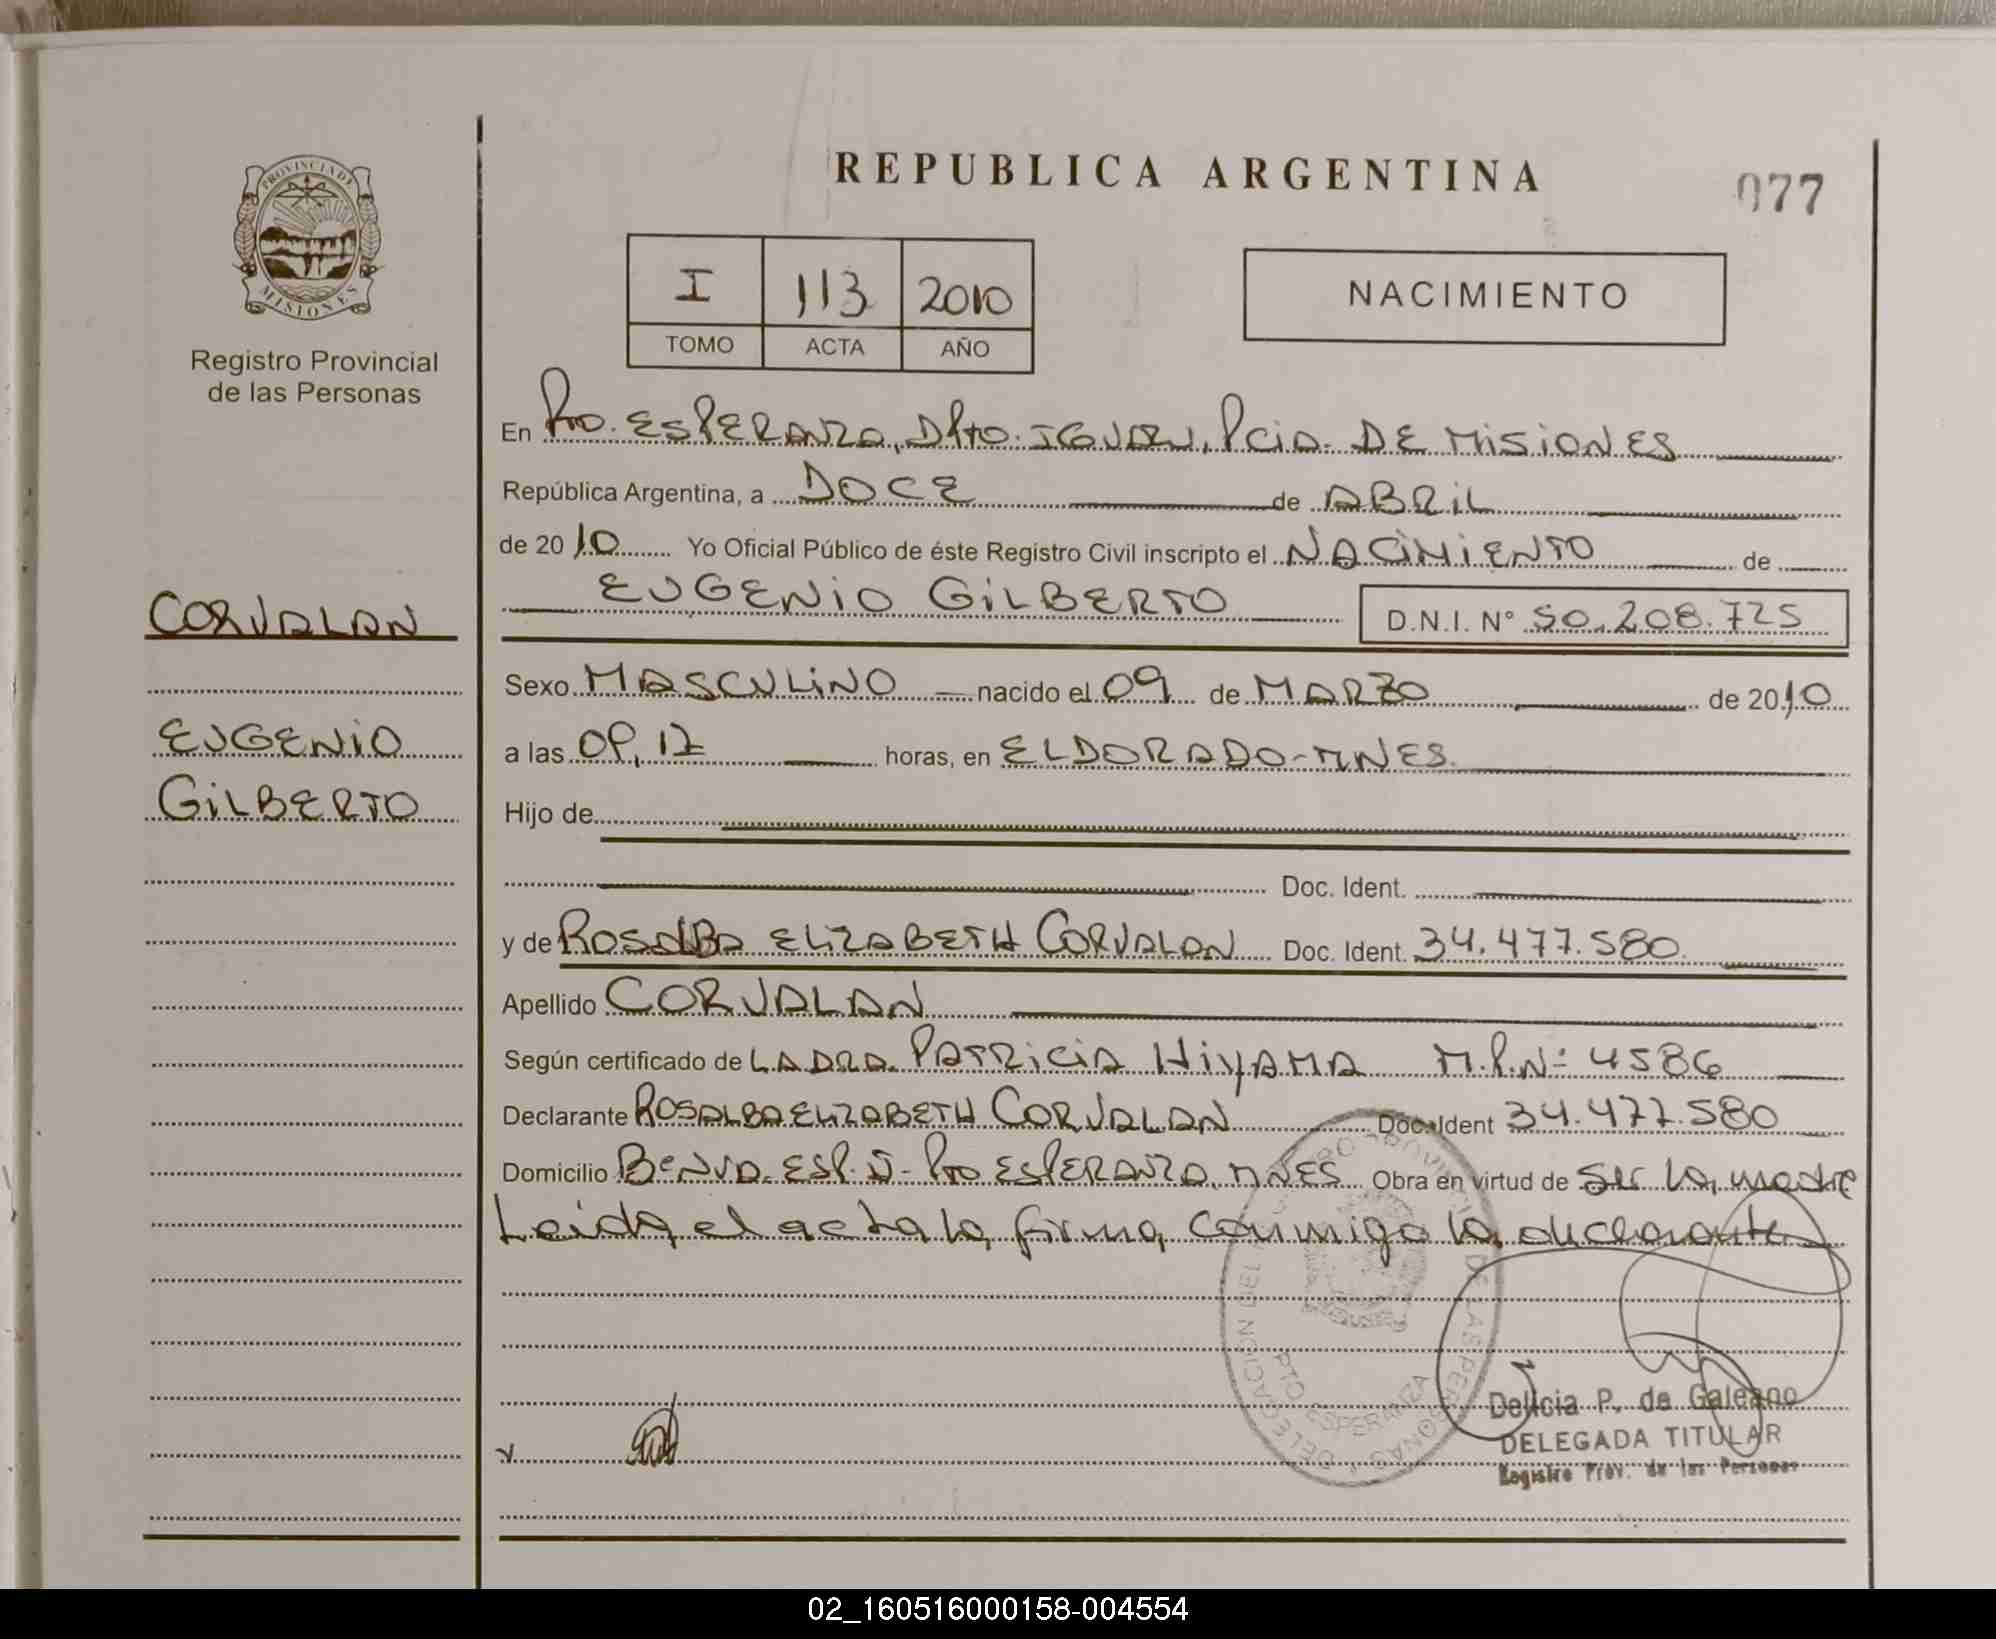 REPUBLICA ARGENTINA
077
PROVINCIA DE
MISIONES
Registro Provincial
de las Personas
I 113 2010
TOMO ACTA AÑO
NACIMIENTO
En Pto. ESPERANZA, DPto. IGUAZU, PciA. DE MISIONES
República Argentina, a DOCE de ABRIL
de 2010 Yo Oficial Público de éste Registro Civil inscripto el NACIMIENTO de
EUGENIO GILBERTO D.N.I. N° 50.208.725
CORVALAN
EUGENIO
GILBERTO
Sexo MASCULINO nacido el 09 de MARZO de 2010
a las 09,12 horas, en ELDORADO-MNES.
Hijo de
Doc. Ident.
y de ROSALBA ELIZABETH CORVALAN Doc. Ident. 34.477.580
Apellido CORVALAN
Según certificado de LA DRA. PATRICIA HIYAMA M.P.N= 4586
Declarante ROSALBA ELIZABETH CORVALAN Doc. Ident 34.477.580
Domicilio ESP. Pto ESPERANZA, MNES Obra en virtud de ser la madre
Leida el acta la firma conmigo la declarante
DELEGACION DEL REGISTRO PROVINCIAL DE LAS PERSONAS
PTO ESPERANZA
Delicia P. de Galeano
DELEGADA TITULAR
Registro Prov. de las Personas
02_160516000158-004554